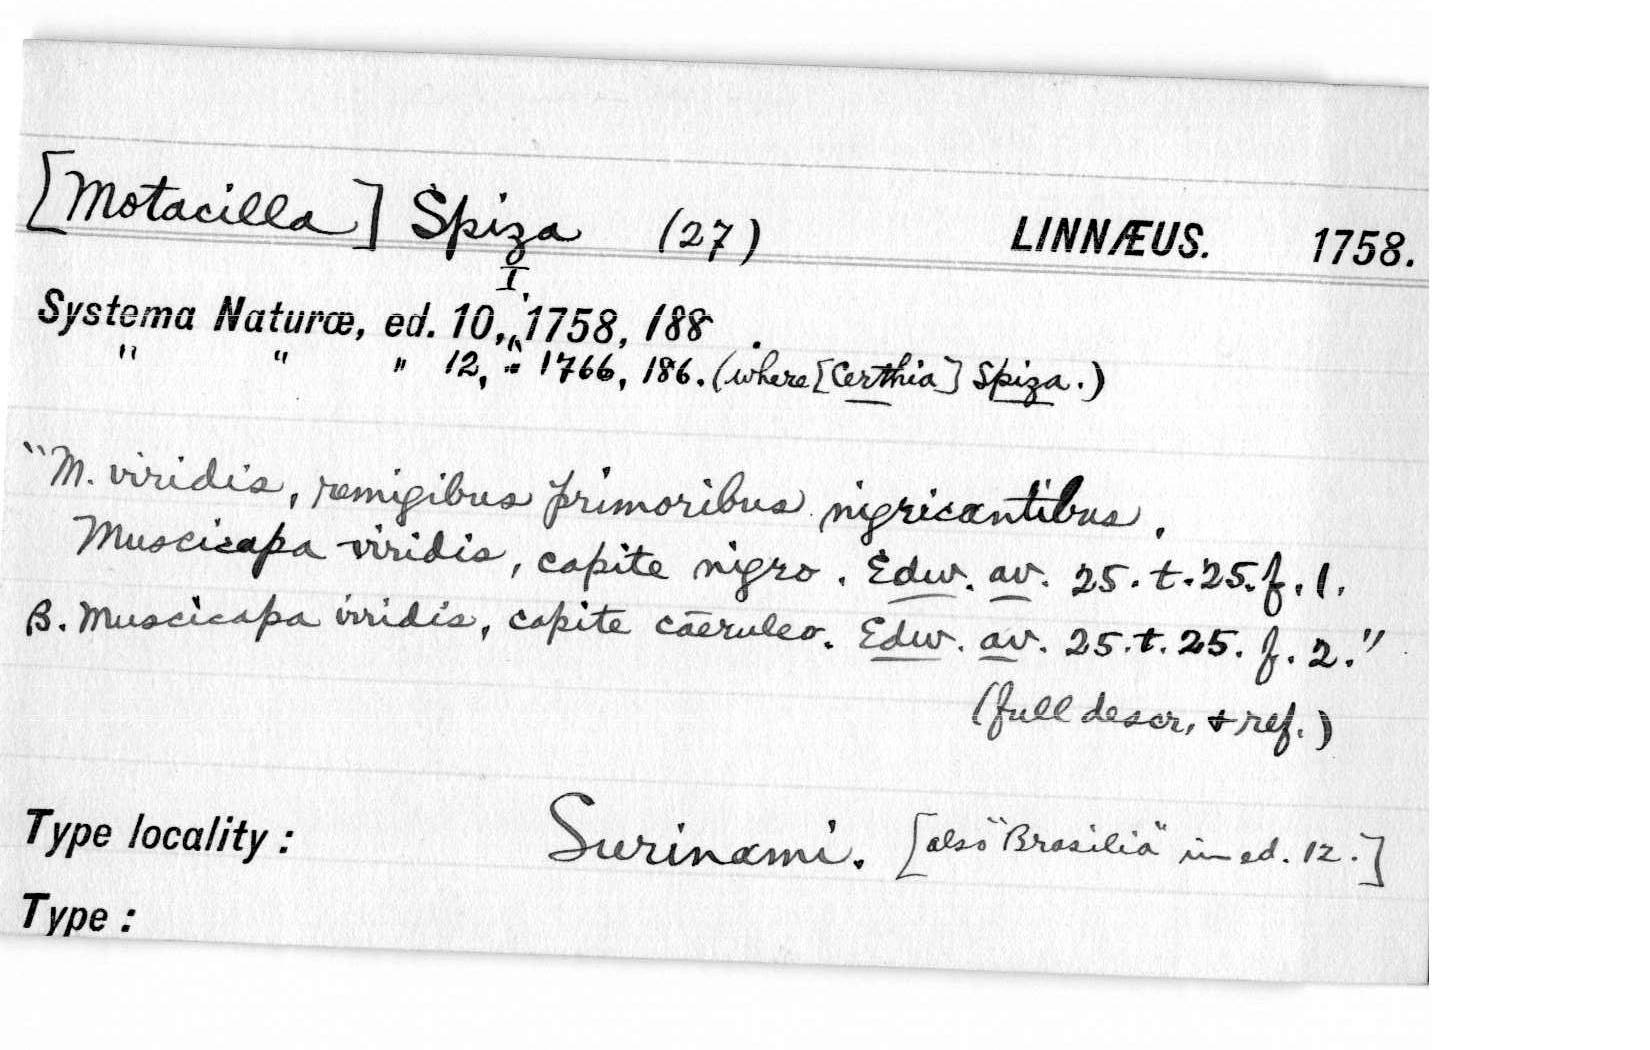 [Motacilla] Spiza (27) LINNÆUS. 1758.
I,
Systema Naturæ, ed. 10, ^ 1758, 188 .
" " " 12, " 1766, 186. (where [Certhia] Spiza.)
"M. viridis, remigibus primoribus nigricantibus.
Muscicapa viridis, capite nigro. Edw. av. 25. t. 25. f. 1.
B. Muscicapa viridis, capite cāeruleo. Edw. av. 25. t. 25. f. 2."
(full descr. + ref.)
Type locality: Surinami. [also "Brasilia" in ed. 12.]
Type: